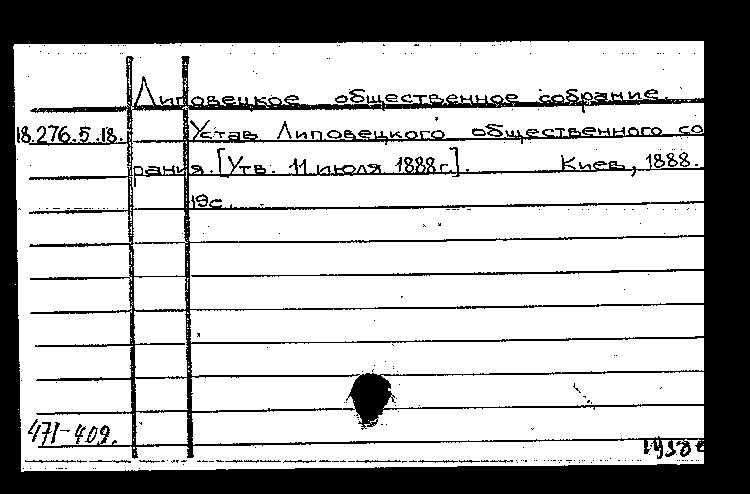 Липовецкое общественное собрание.
18.276.5.18. Устав Липовецкого общественного со
рания. [Утв. 11 июля 1888 г.]. Киев, 1888.
19с.
471-409.